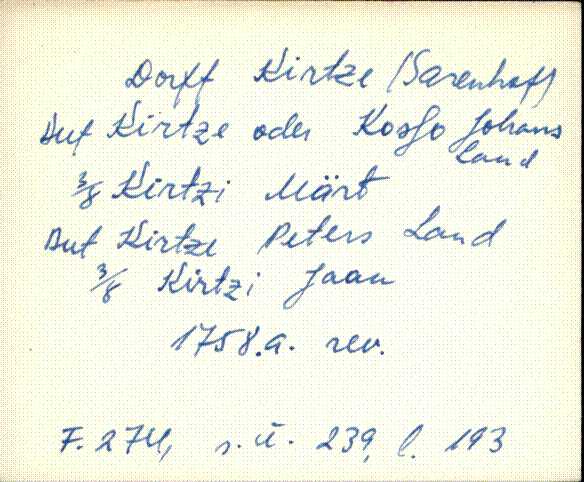 Dorff Kirtze (Sarenhoff)
Auf Kirtze oder Kosso Johans Land
3/8 Kirtzi Märt
Auf Kirtze Peters Land
3/8 Kirtzi Jaan
1758.a. rev.
F. 274, s.ü. 239, l. 193